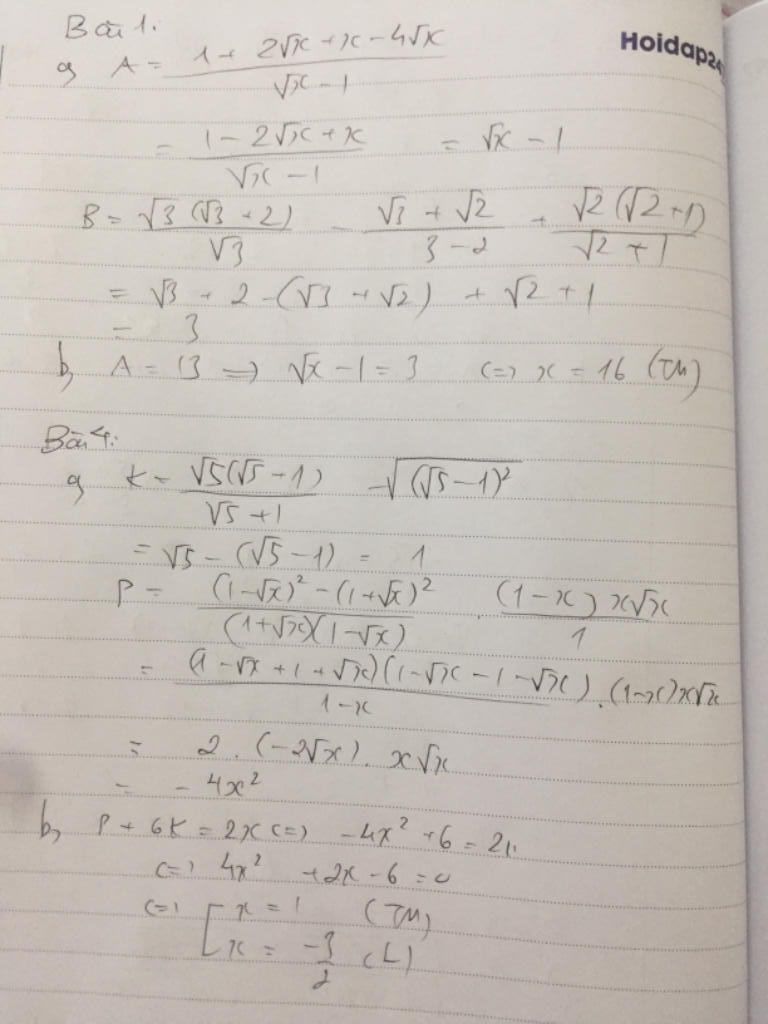 Bài 1.
Hoidap24
a, A = (1 + 2√x + x - 4√x)/(√x - 1)
= (1 - 2√x + x)/(√x - 1) = √x - 1
B = √3(√3 + 2)/√3 - (√3 + √2)/(3 - 2) + √2(√2 + 1)/(√2 + 1)
= √3 + 2 - (√3 + √2) + √2 + 1
= 3
b, A = B => √x - 1 = 3 <=> x = 16 (TM)
Bài 4:
a, K = √5(√5 + 1)/(√5 + 1) - √((√5 - 1)²)
= √5 - (√5 - 1) = 1
P = ((1 - √x)² - (1 + √x)²)/((1 + √x)(1 - √x)) . (1 - x) x√x/1
= (1 - √x + 1 + √x)(1 - √x - 1 - √x)/(1 - x) . (1 - x) x√x
= 2 . (-2√x) . x√x
= -4x²
b, P + 6K = 2x <=> -4x² + 6 = 2x
<=> 4x² + 2x - 6 = 0
<=> [ x = 1 (TM)
x = -3/2 (L)